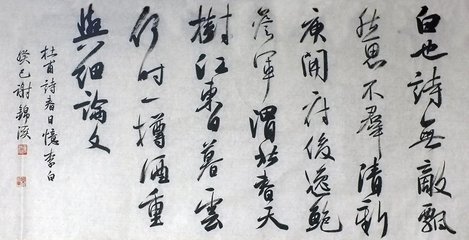 白也詩無敵飄
然思不羣清新
庾開府俊逸鮑
參軍渭北春天
樹江東日暮雲
何時一樽酒重
與細論文
杜甫詩春日憶李白
癸巳謝錦